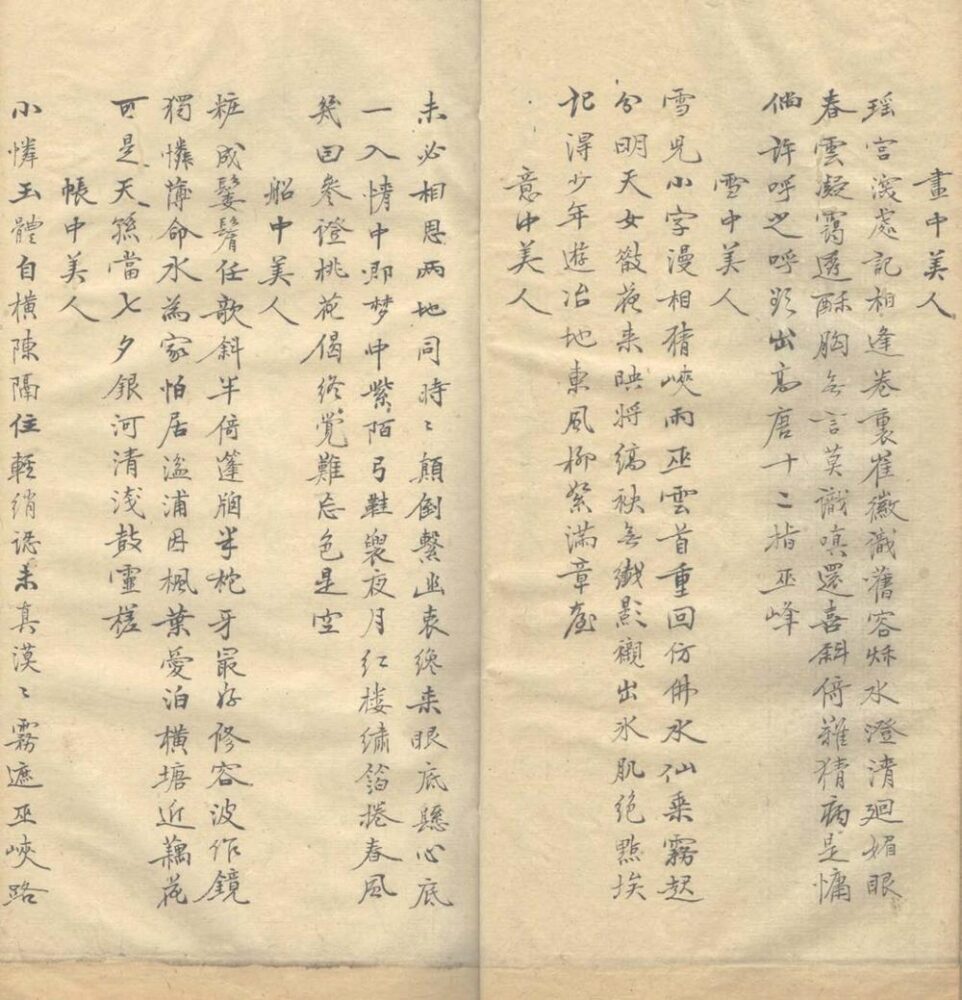 畫中美人
瑶宫深處記相逢卷裏崔徽識舊容秌水澄清廻媚眼
春雲凝靄透酥胸無言莫識嗔還喜斜倚難猜病是慵
倘許呼之呼欲出高唐十二指巫峰
雪中美人
雪兒小字漫相猜峽雨巫雲首重回仿佛水仙乘霧起
分明天女散花来映将縞袂無纖影襯出氷肌絶點埃
記得少年遊冶地東風柳絮滿章臺
意中美人
未必相思两地同時〻顛倒繫幽衷纔来眼底懸心底
一入情中即梦中紫陌弓鞋褭夜月红楼繡箔捲春風
幾回參證桃花偈终覺難忘色是空
船中美人
粧成鬖髾任歌斜半倚篷牕半枕牙最好修容波作鏡
獨憐薄命水為家怕居湓浦因楓葉愛泊横塘近藕花
可是天孫當七夕銀河清淺鼓靈槎
帳中美人
小憐玉體自横陳隔住輕绡認未真漠〻霧遮巫峽路